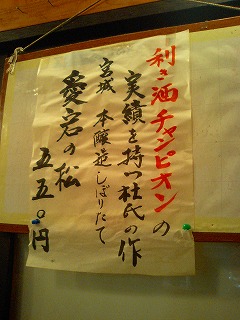 利き酒チャンピオンの
実績を持つ杜氏の作
宮城 本醸造しぼりたて
愛宕の松
五五〇円